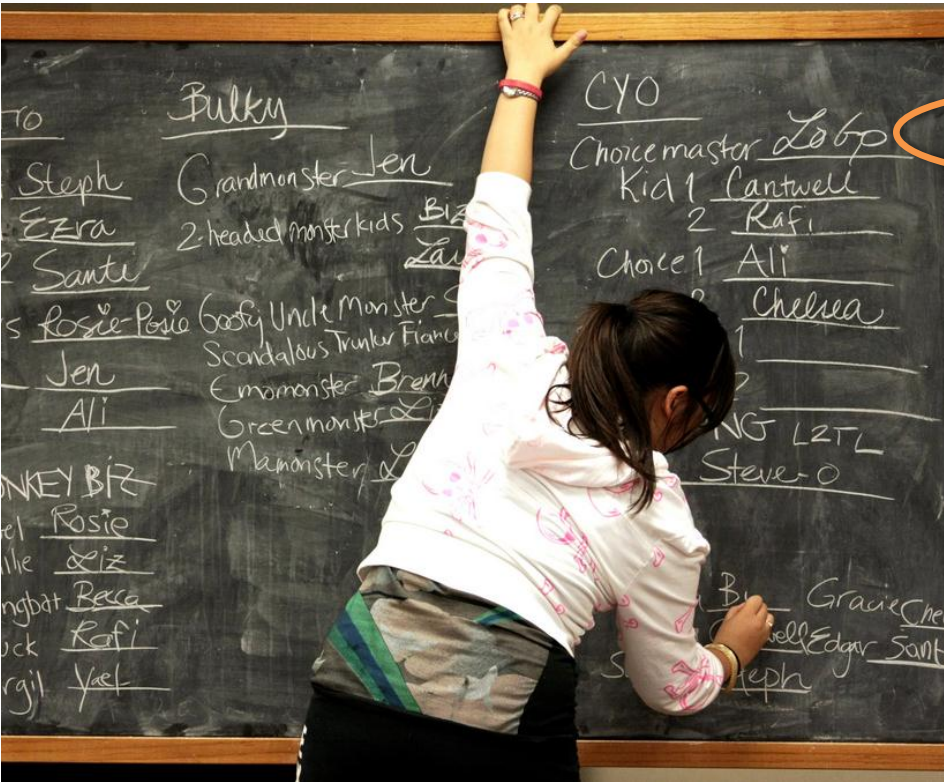 TO
Steph
Ezra
2 Santi
s Rosie-Posie
Jen
Ali
NKEY BIZ
el Rosie
lie Liz
ngbat Becca
uck Rafi
rgil Yael
Bulky
Grandmonster Jen
2-headed monster kids Biz
Lau
Goofy Uncle Monster
Scandalous Trunlur Fiance
Emomonster Brenn
Greenmonster Li
Mamonster L
CYO
Choicemaster LoGo
Kid 1 Cantwell
2 Rafi
Choice 1 Ali
2 Chelsea
1
2
NG LZTL
Steve-O
B Gracie Che
well Edgar Sant
S teph